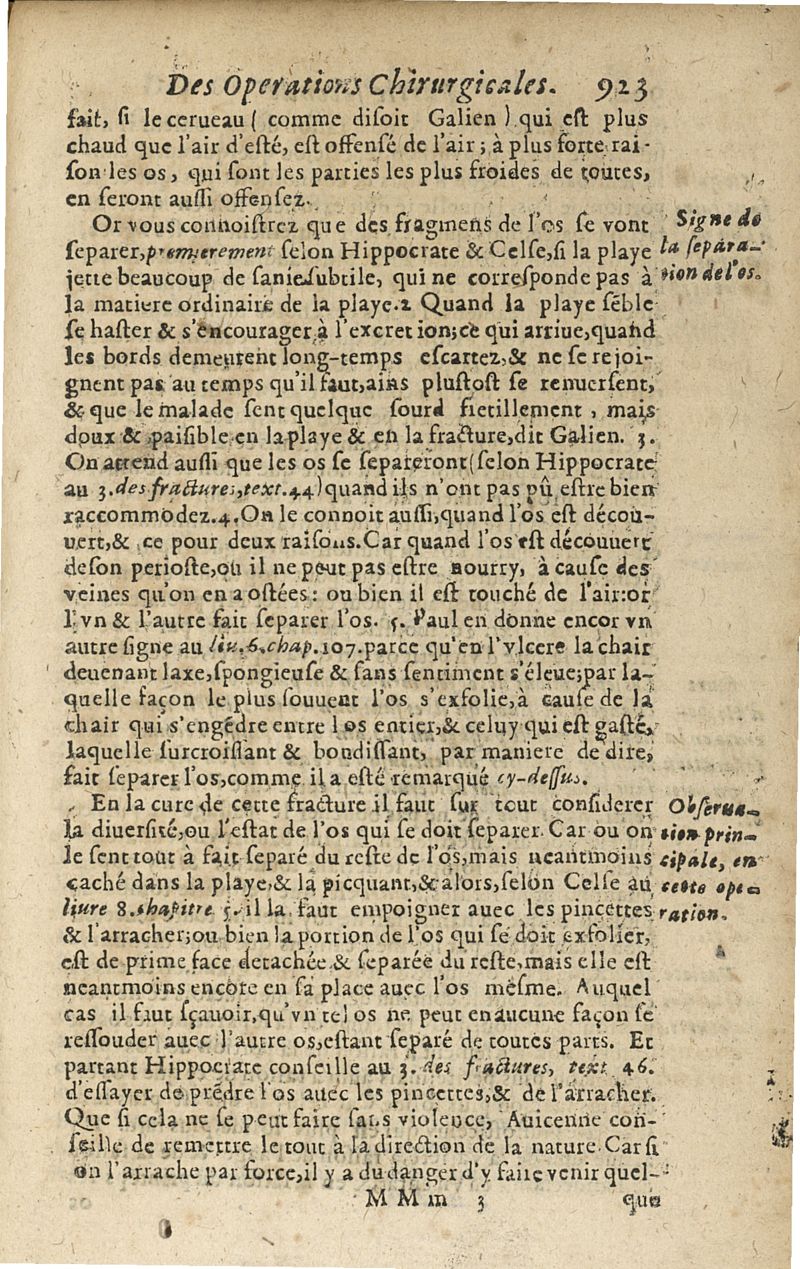 Des Operations Chirurgicales. 923
fait, si le cerueau ( comme disoit Galien ) qui est plus
chaud que l'air d'esté, est offensé de l'air ; à plus forte rai-
son les os, qui sont les parties les plus froides de toutes,
en seront aussi offensez.
Or vous connoistrez que des fragmens de l'os se vont
separer, premierement selon Hippocrate & Celse, si la playe
jette beaucoup de sanie subtile, qui ne corresponde pas à
la matiere ordinaire de la playe. 2 Quand la playe sẽble
se haster & s'encourager à l'excretion; ce qui arriue, quand
les bords demeurent long-temps escartez, & ne se rejoi-
gnent pas au temps qu'il faut, ains plustost se renuersent,
& que le malade sent quelque sourd fretillement , mais
doux & paisible en la playe & en la fracture, dit Galien. 3.
On attend aussi que les os se separeront (selon Hippocrate
au 3. des fractures, text. 44) quand ils n'ont pas pû estre bien
raccommodez. 4. On le connoit aussi, quand l'os est décou-
uert, & ce pour deux raisons. Car quand l'os est découuert
de son perioste, ou il ne peut pas estre nourry, à cause des
veines qu'on en a ostées : ou bien il est touché de l'air: or
l'vn & l'autre fait separer l'os. 5. Paul en donne encor vn
autre signe au liu. 6. chap. 107. parce qu'en l'vlcere la chair
deuenant laxe, spongieuse & sans sentiment s'éleue; par la-
quelle façon le plus souuent l'os s'exfolie, à cause de la
chair qui s'engẽdre entre l os entier, & celuy qui est gasté,
laquelle surcroissant & bondissant, par maniere de dire,
fait separer l'os, comme il a esté remarqué cy-dessus.
En la cure de cette fracture il faut sur tout considerer
la diuersité, ou l'estat de l'os qui se doit separer. Car ou on
le sent tout à fait separé du reste de l'os, mais neantmoins
caché dans la playe, & la picquant, & alors, selon Celse au
liure 8. chapitre 5. il la faut empoigner auec les pincettes
& l'arracher; ou bien la portion de l'os qui se doit exfolier,
est de prime face detachée & separée du reste, mais elle est
neantmoins encore en sa place auec l'os mesme. Auquel
cas il faut sçauoir, qu'vn tel os ne peut en aucune façon se
ressouder auec l'autre os, estant separé de toutes parts. Et
partant Hippocrate conseille au 3. des fractures, text 46.
d'essayer de prẽdre l'os auec les pincettes, & de l'arracher.
Que si cela ne se peut faire sans violence, Auicenne con-
seille de remettre le tout à la direction de la nature. Car si
on l'arrache par force, il y a du danger d'y faire venir quel-
M M m 3 que
Signe de
la separa-
tion de l'os.
Obserua-
tion prin-
cipale, en
cette ope-
ration.